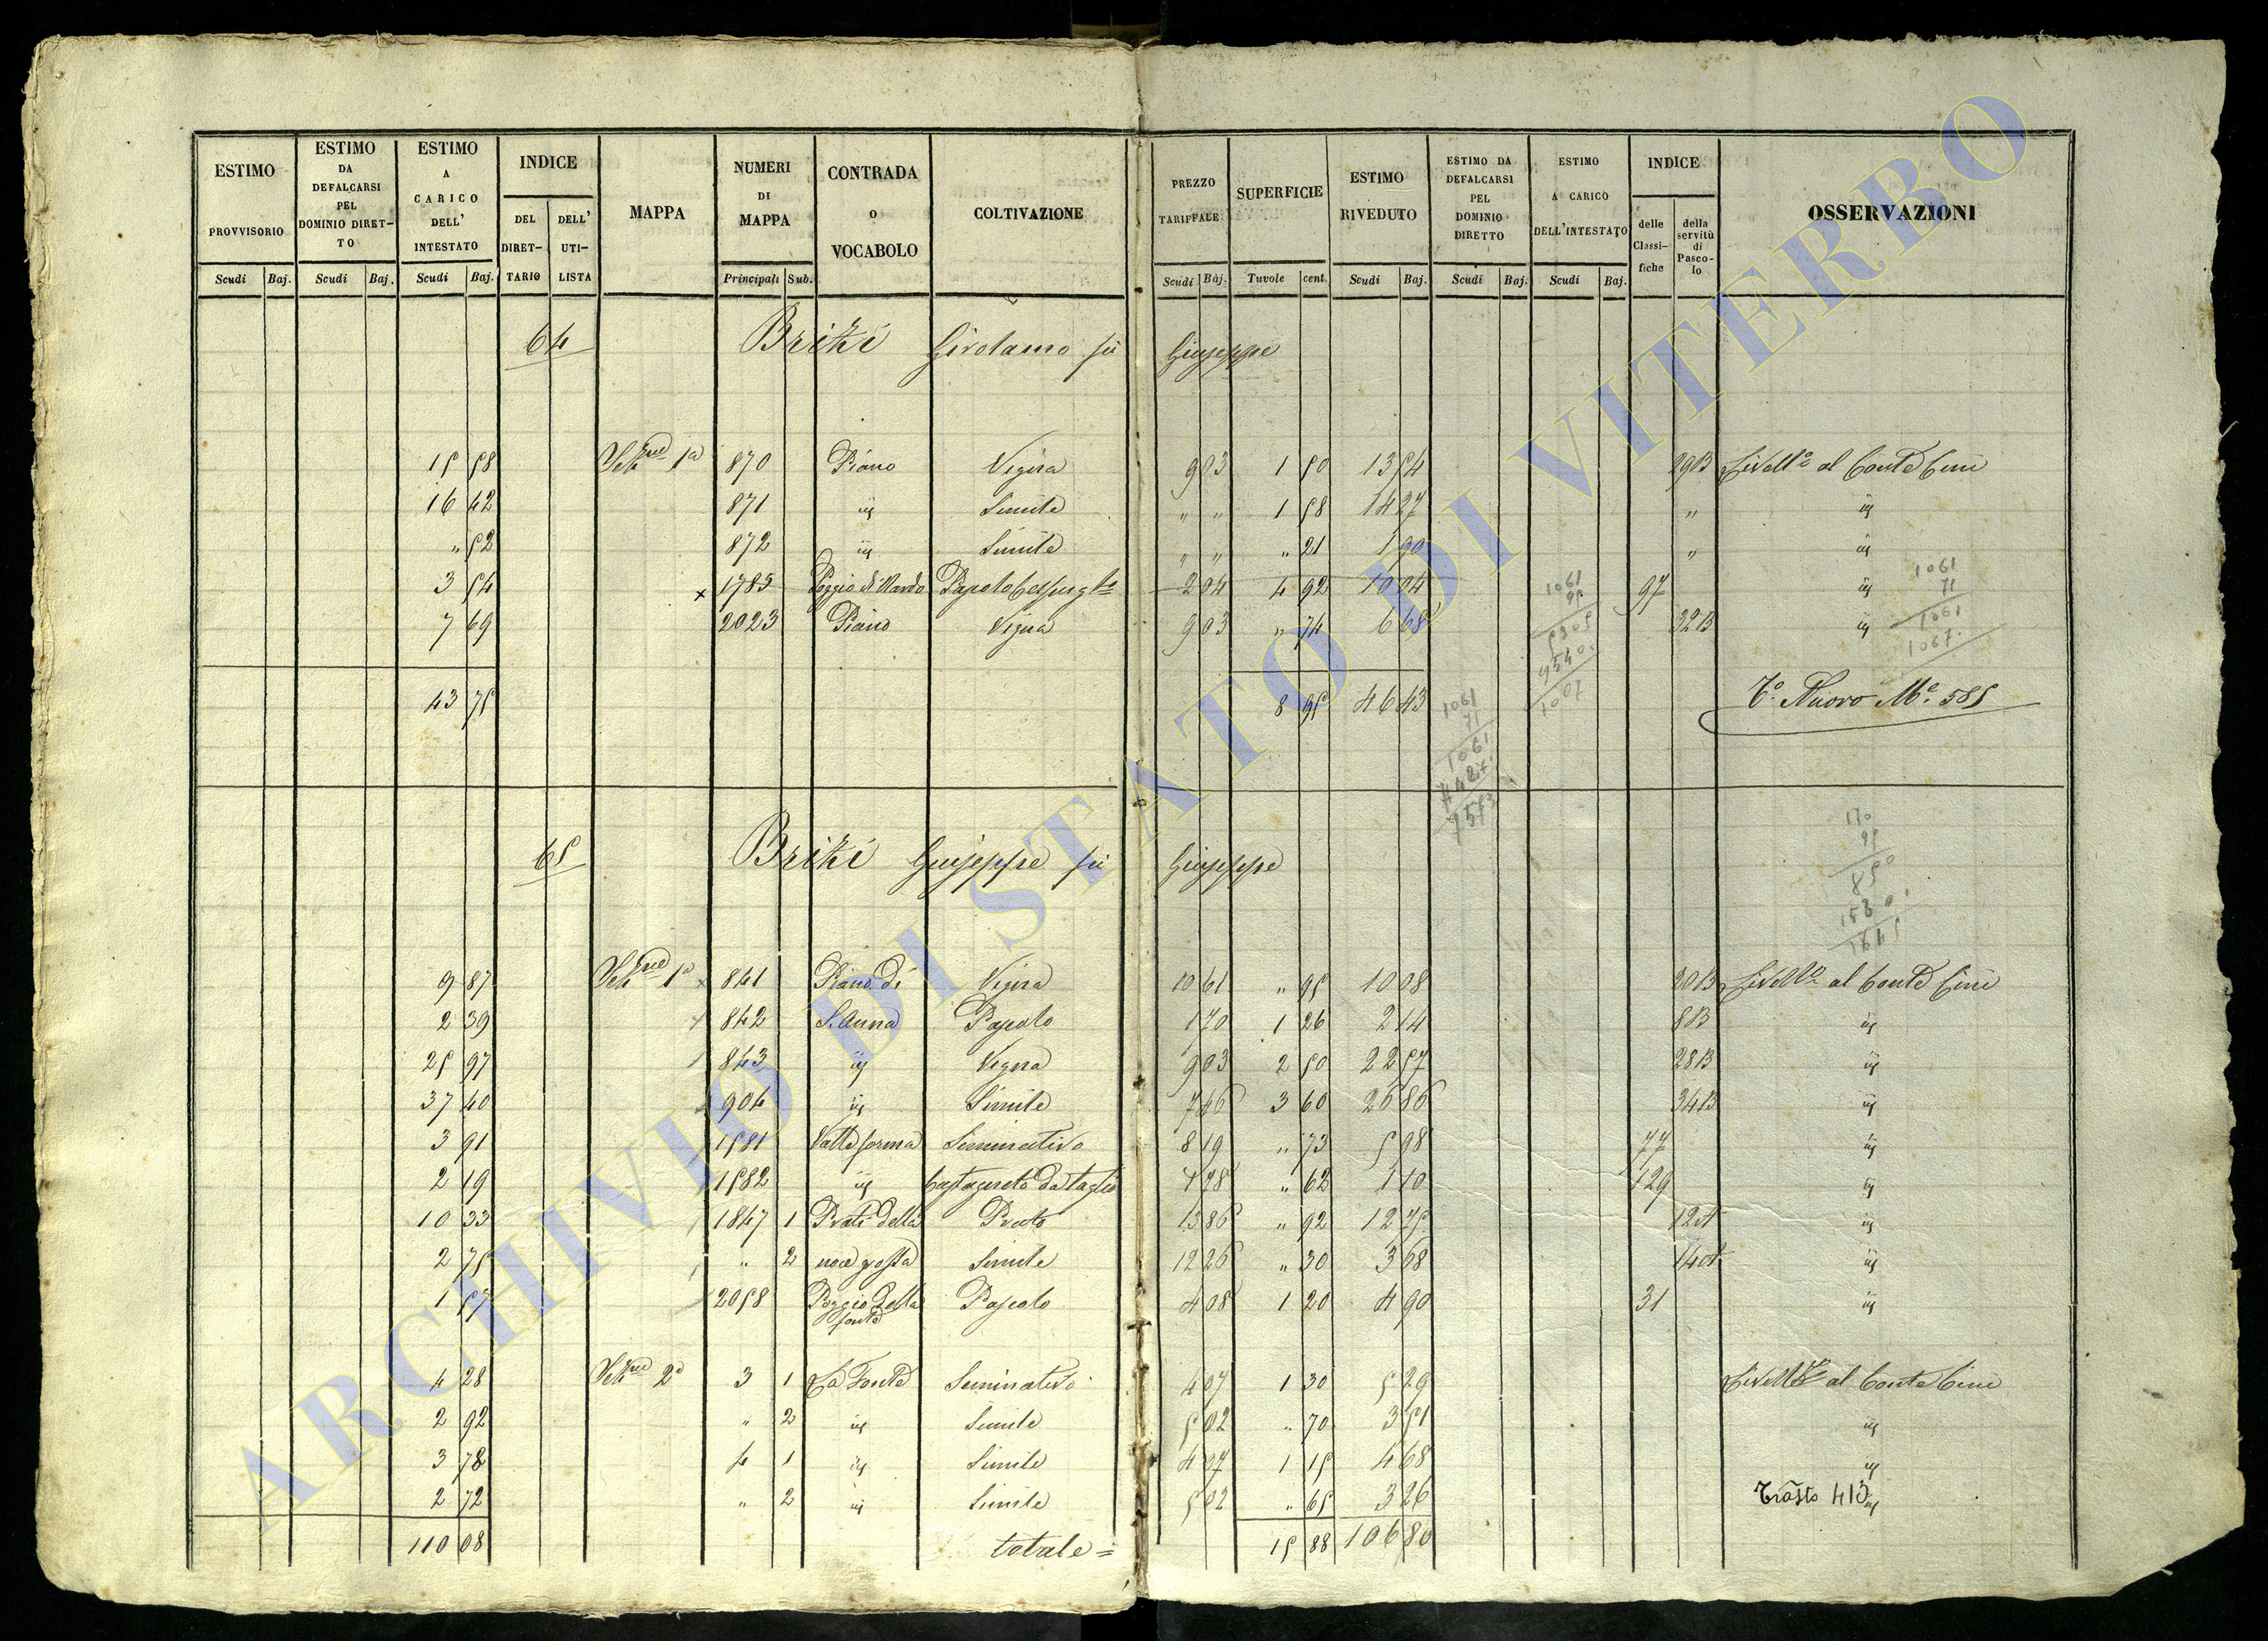 ESTIMO PROVVISORIO | ESTIMO DA DEFALCARSI PEL DOMINIO DIRETTO | ESTIMO A CARICO DELL' INTESTATO | INDICE | MAPPA | NUMERI DI MAPPA | CONTRADA o VOCABOLO | COLTIVAZIONE | PREZZO TARIFFALE | SUPERFICIE | ESTIMO RIVEDUTO | ESTIMO DA DEFALCARSI PEL DOMINIO DIRETTO | ESTIMO A CARICO DELL'INTESTATO | INDICE | OSSERVAZIONI
DEL DIRETTARIO | DELL' UTILISTA | delle Classifiche | della servitù di Pascolo
Scudi Baj. | Scudi Baj. | Scudi Baj. | Principali Sub. | Scudi Baj. | Tavole cent. | Scudi Baj. | Scudi Baj. | Scudi Baj.
64 Brizi Girolamo fu Giuseppe
15 58 | 1a | 870 | Piano | Vigna | 9 03 | 1 50 | 13 54 | 29B | Livello al Conte Cini
16 42 | 871 | id | Simile | " " | 1 58 | 14 27 | " | id
" 52 | 872 | id | Simile | " " | " 21 | 1 90 | " | id
3 54 | x 1785 | Pascolo | 2 04 | 4 92 | 10 04 | 97 | id
7 69 | 2023 | Piano | Vigna | 9 03 | " 74 | 6 68 | 32B | id
43 75 | 8 95 | 46 43
1061
95
5305
9540.
1007
1061
71
1061
1061
71
1061
7427.
Nuovo 585
65 Brizi Giuseppe fu Giuseppe
170
95
850
1530.
9 87 | 1a | x 841 | Piano di | Vigna | 10 61 | " 95 | 10 08 | 30B | Livello al Conte Cini
2 39 | 842 | S. Anna | Pascolo | 1 70 | 1 26 | 2 14 | 8B | id
25 97 | 843 | id | Vigna | 9 03 | 2 50 | 22 57 | 28B | id
37 40 | 904 | id | Simile | 7 46 | 3 60 | 26 86 | 34B | id
3 91 | 1581 | Valle forma | Seminativo | 8 19 | " 73 | 5 98 | 77 | id
2 19 | 1582 | id | Castagneto da taglio | 1 78 | " 62 | 1 10 | 129 | id
10 33 | 1847 1 | Prati della | Prato | 13 86 | " 92 | 12 75 | 12A | id
2 75 | " 2 | noce grossa | Simile | 12 26 | " 30 | 3 68 | 14A | id
1 57 | 2058 | Poggio della fonte | Pascolo | 4 08 | 1 20 | 4 90 | 31 | id
4 28 | 2a | 3 1 | La Fonte | Seminativo | 4 07 | 1 30 | 5 29 | Livello al Conte Cini
2 92 | " 2 | id | Simile | 5 02 | " 70 | 3 51 | id
3 78 | 4 1 | id | Simile | 4 07 | 1 15 | 4 68 | id
2 72 | " 2 | id | Simile | 5 02 | " 65 | 3 26 | id
Trasto 413
110 08 | totale = | 15 88 | 106 80
ARCHIVIO DI STATO DI VITERBO